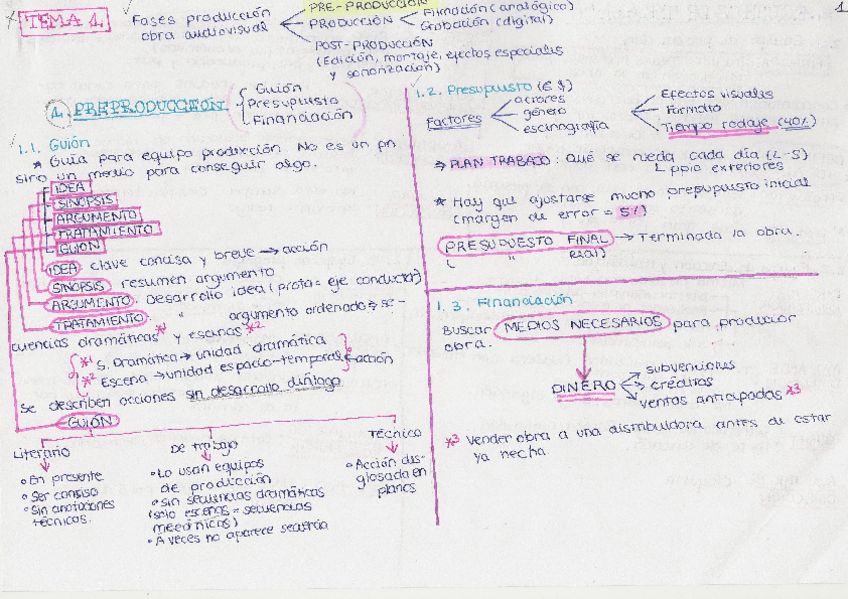 1
TEMA 1.
Fases producción
obra audiovisual
PRE-PRODUCCIÓN
PRODUCCIÓN
Filmación (analógico)
Grabación (digital)
POST-PRODUCCIÓN
(Edición, montaje, efectos especiales
y sonorización)
1. PREPRODUCCIÓN
Guión
Presupuesto
Financiación
1.1. Guión
* Guía para equipo producción. No es un fin
sino un medio para conseguir algo.
IDEA
SINOPSIS
ARGUMENTO
TRATAMIENTO
GUION
IDEA clave concisa y breve → acción
SINOPSIS resumen argumento
ARGUMENTO. Desarrollo idea (prota = eje conductor)
TRATAMIENTO. " argumento ordenado → se-
cuencias dramáticas *1 y escenas *2
*1 S. Dramática → unidad dramática
*2 Escena → unidad espacio-temporal
acción
Se describen acciones sin desarrollo diálogo
GUIÓN
Literario
• En presente
• Ser conciso
• Sin anotaciones
técnicas.
De trabajo
• Lo usan equipos
de producción
• Sin secuencias dramáticas
(solo escenas = secuencias
mecánicas)
• A veces no aparece
Técnico
• Acción des-
glosada en
planos
1.2. Presupuesto (€ $)
Factores
actores
género
escenografía
Efectos visuales
Formato
Tiempo rodaje (40%)
→ PLAN TRABAJO: Qué se rueda cada día (L-S)
L ppio exteriores
* Hay que ajustarse mucho presupuesto inicial
(margen de error = 5%)
PRESUPUESTO FINAL → Terminada la obra.
( " real)
1.3. Financiación
Buscar MEDIOS NECESARIOS para producir
obra.
DINERO
subvenciones
créditos
ventas anticipadas *3
*3 Vender obra a una distribuidora antes de estar
ya hecha